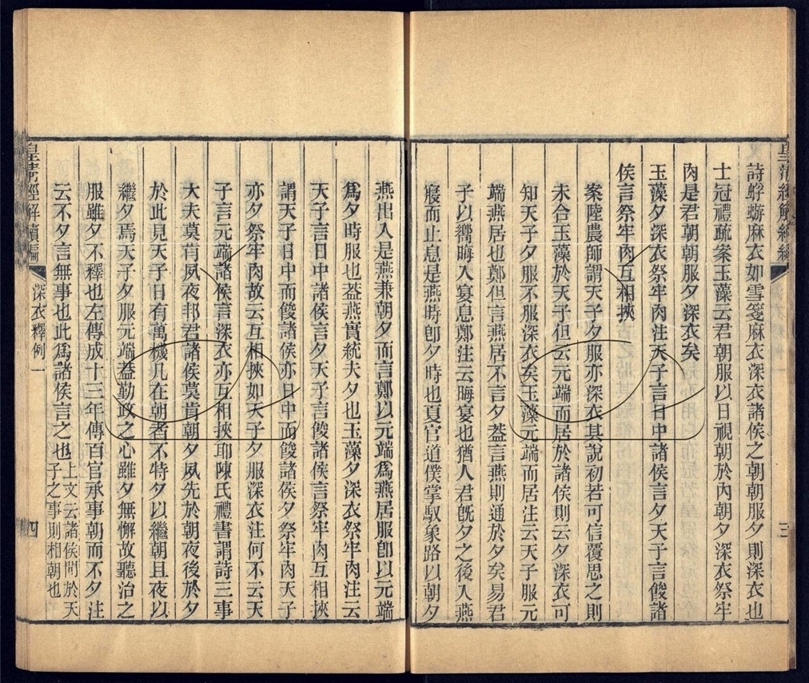 詩蜉蝣麻衣如雪箋麻衣深衣諸侯之朝朝服夕則深衣也
士冠禮疏案玉藻云君朝服以日視朝於內朝夕深衣祭牢
肉是君朝朝服夕深衣矣
玉藻夕深衣祭牢肉注天子言日中諸侯言夕天子言餕諸
侯言祭牢肉互相挾
案陸農師謂天子夕服亦深衣其說初若可信覆思之則
未合玉藻於天子但云元端而居於諸侯則云夕深衣可
知天子夕服不服深衣矣玉藻元端而居注云天子服元
端燕居也鄭但言燕居不言夕葢言燕則通於夕矣易君
子以嚮晦入宴息鄭注云晦宴也猶人君旣夕之後入燕
寢而止息是燕時卽夕時也夏官道僕掌馭象路以朝夕
三
皇清經解續編
深衣釋例一
四
燕出入是燕兼朝夕而言鄭以元端爲燕居服卽以元端
爲夕時服也葢燕實統夫夕也玉藻夕深衣祭牢肉注云
天子言日中諸侯言夕天子言餕諸侯言祭牢肉互相挾
謂天子日中而餕諸侯亦日中而餕諸侯夕祭牢肉天子
亦夕祭牢肉故云互相挾如天子夕服深衣注何不云天
子言元端諸侯言深衣亦互相挾耶陳氏禮書謂詩三事
大夫莫肯夙夜邦君諸侯莫肯朝夕夙先於朝夜後於夕
於此見天子日有萬機凡在朝者不特夕以繼朝且夜以
繼夕焉天子夕服元端葢勤政之心雖夕無懈故聽治之
服雖夕不釋也左傳成十三年傳百官承事朝而不夕注
云不夕言無事也此爲諸侯言之也
上文云諸侯間於天
子之事則相朝也